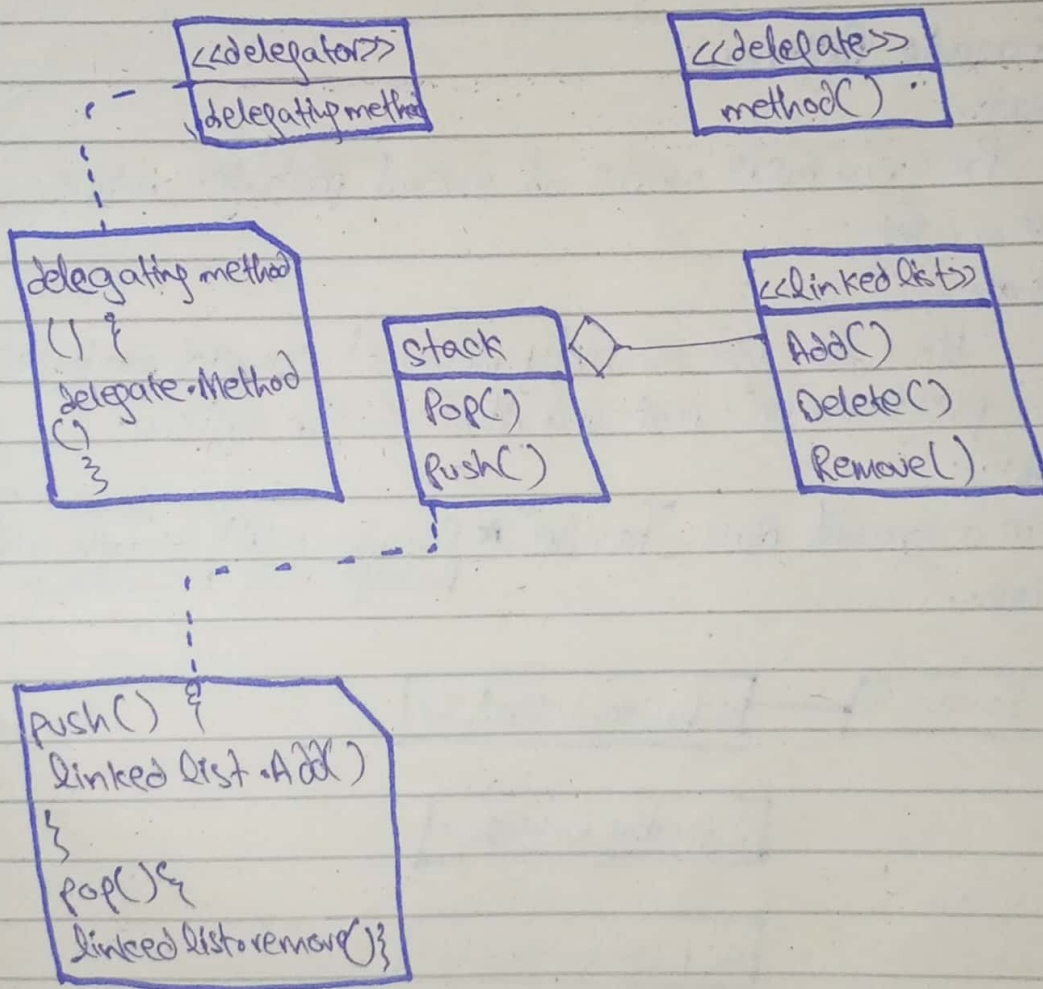 <<delegator>>
delegating method
<<delegate>>
method()
delegating method
() {
delegate.Method
()
}
stack
Pop()
Push()
<<linked list>>
Add()
Delete()
Remove()
push() {
linked list.Add()
}
pop(){
linked list.remove()}